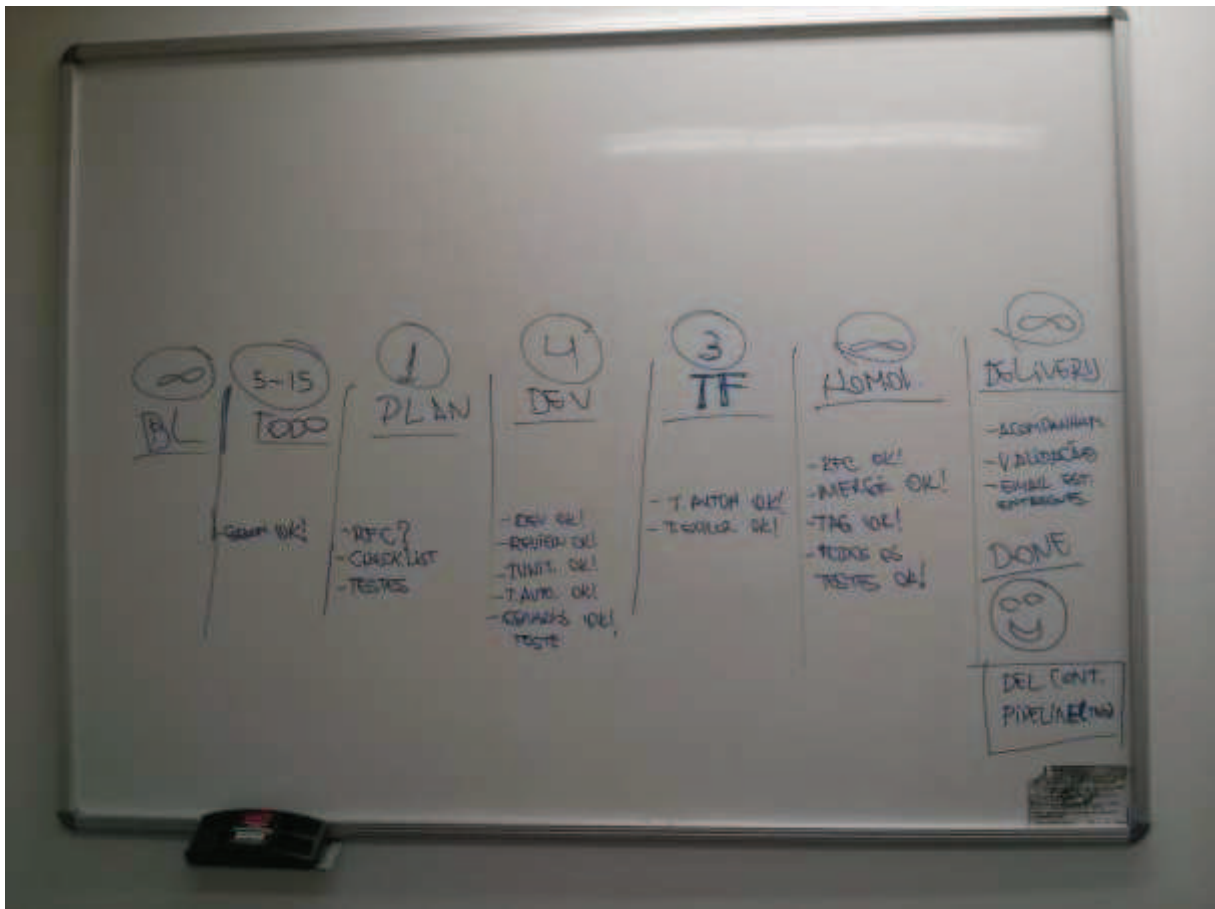 ∞
BL
5-15
TODO
- OK!
1
PLAN
- RFC?
- CHECKLIST
- TESTES
4
DEV
- DEV OK!
- REVIEW OK!
- T.UNIT. OK!
- T.AUTO. OK!
- OK!
TESTE
3
TF
- T. AUTOM OK!
- T. EXPLOR OK!
∞
HOMOL
- RFC OK!
- MERGE OK!
- TAG OK!
- TODOS OS
TESTES OK!
∞
DELIVERY
- ACOMPANHAM.
- VALIDAÇÃO
- EMAIL EST.
ENTREGUES
DONE
DEL CONT.